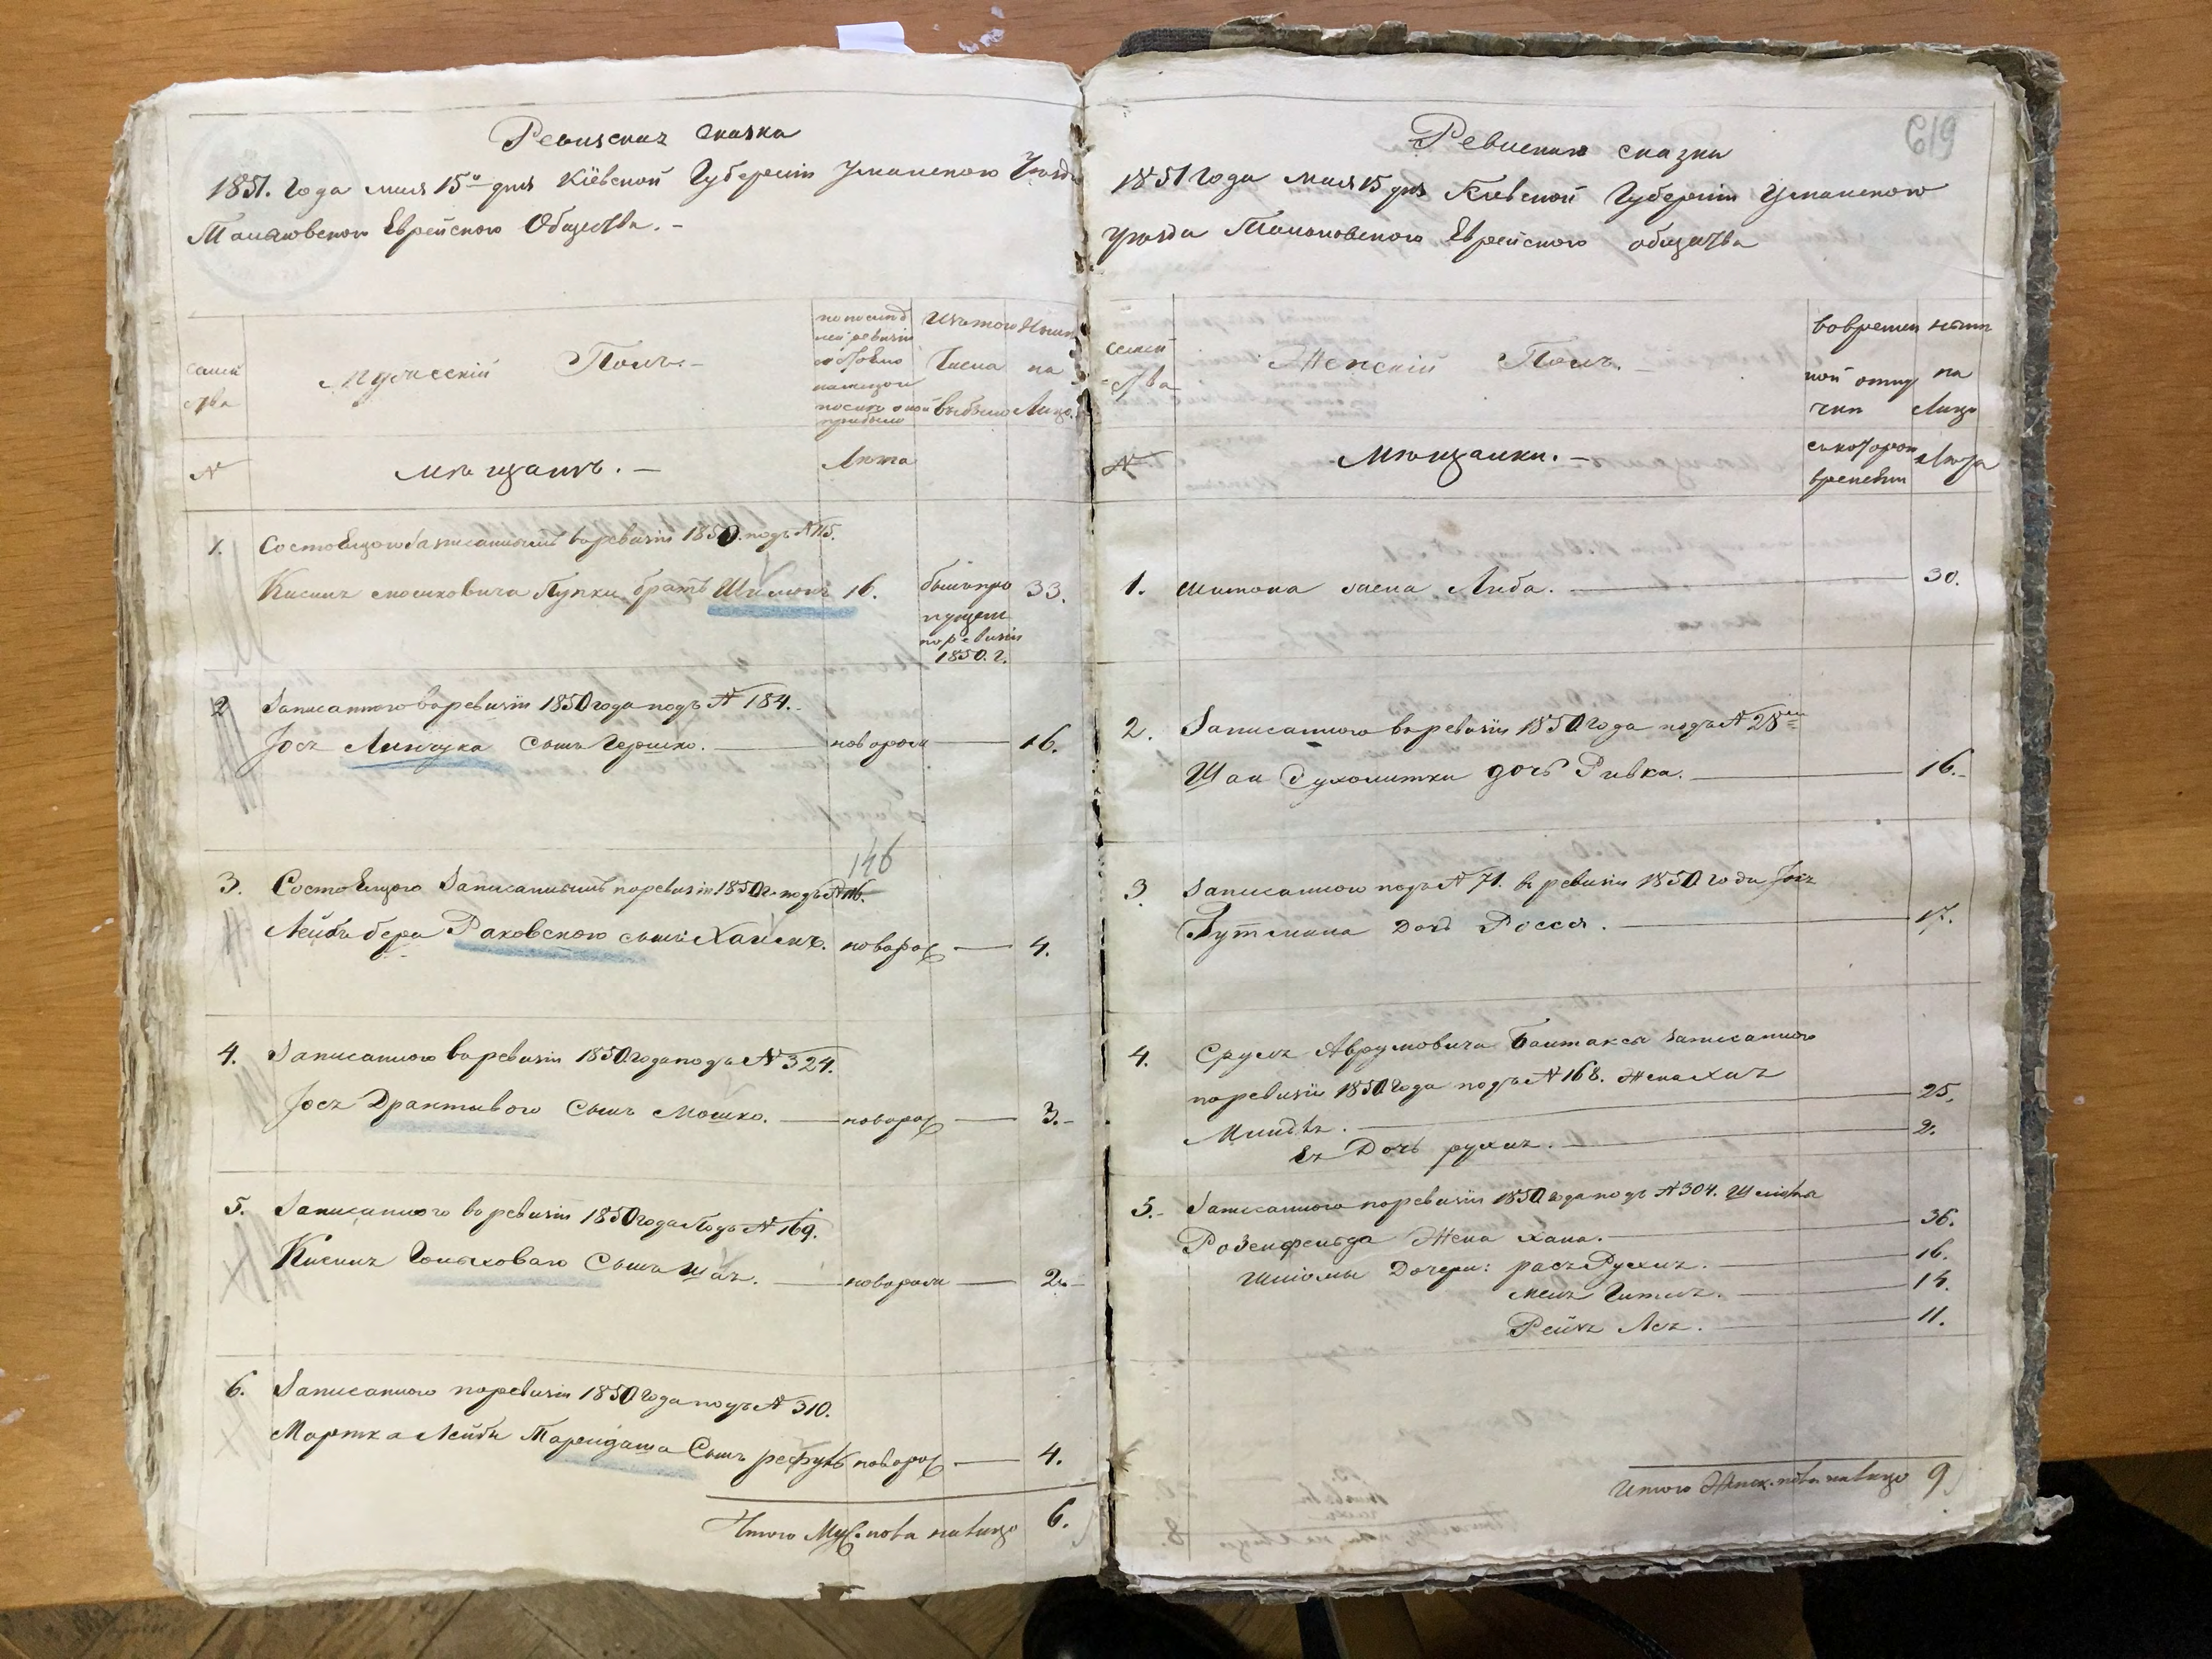 Ревизская сказка
1851. Года мая 15го дня Кіевской Губерніи Уманского Уезда
Тальновского Еврейского Общества. -
семей
ства
Мужескій Полъ. -
по послед
ней ревизіи
состояло
и после оной
прибыло
Изъ того
Числа
выбыло
Ныне
на
Лицо.
№
мещане. -
Лета
1. Состоящаго записаннымъ в ревизіи 1850. подъ №115.
Мошковича брат Шимонъ 16.
было про
пущен
по ревизіи
1850. г.
33.
2 Записанного в ревизіи 1850 года подъ № 184.
Іось Линчука сынъ Гершко. новорож 16.
146
3. Состоящаго записаннымъ по ревизіи 1850 г. подъ № 116.
Лейбъ бера Раковского сынъ Хаимъ. новорож 4.
4. Записанного в ревизіи 1850 года подъ № 324.
Іось сынъ Мошко. новорож 3. -
5. Записанного в ревизіи 1850 года подъ № 169.
сынъ Шая. новорож 2. -
6. Записанного по ревизіи 1850 года подъ № 310.
Мортка Лейбы Тарейдаша Сынъ новорож 4.
Итого Муж. пола на лицо 6.
619
Ревизская сказка
1851 года мая 15 дня Кіевской Губерніи Уманского
Уезда Тальновского Еврейского общества
семей
ства
Женскій Полъ. -
во времен
ной отлуч
ки
ныне
на
Лицо
№
Мещанки. -
съ котораго
времени
Лета
1. Шимона жена Либа. 30.
2. Записанного в ревизіи 1850 года подъ № 28
Шаи Сухолитки дочь Ривка. 16. -
3. Записанного подъ № 71. в ревизіи 1850 года Іось
Гутмана дочь Росся. 17.
4. Срулъ Аврумовича записанного
по ревизіи 1850 года подъ № 168. Жена Хая
Миндля. 25.
Её Дочь рухля. 2.
5. - Записанного по ревизіи 1850 года подъ № 304. Шлиомы
Розенфельда Жена Хана. 36.
Шліомы Дочери: 16.
Гитля. 14.
Рейзя Лея. 11.
Итого Женск. пола на лицо 9